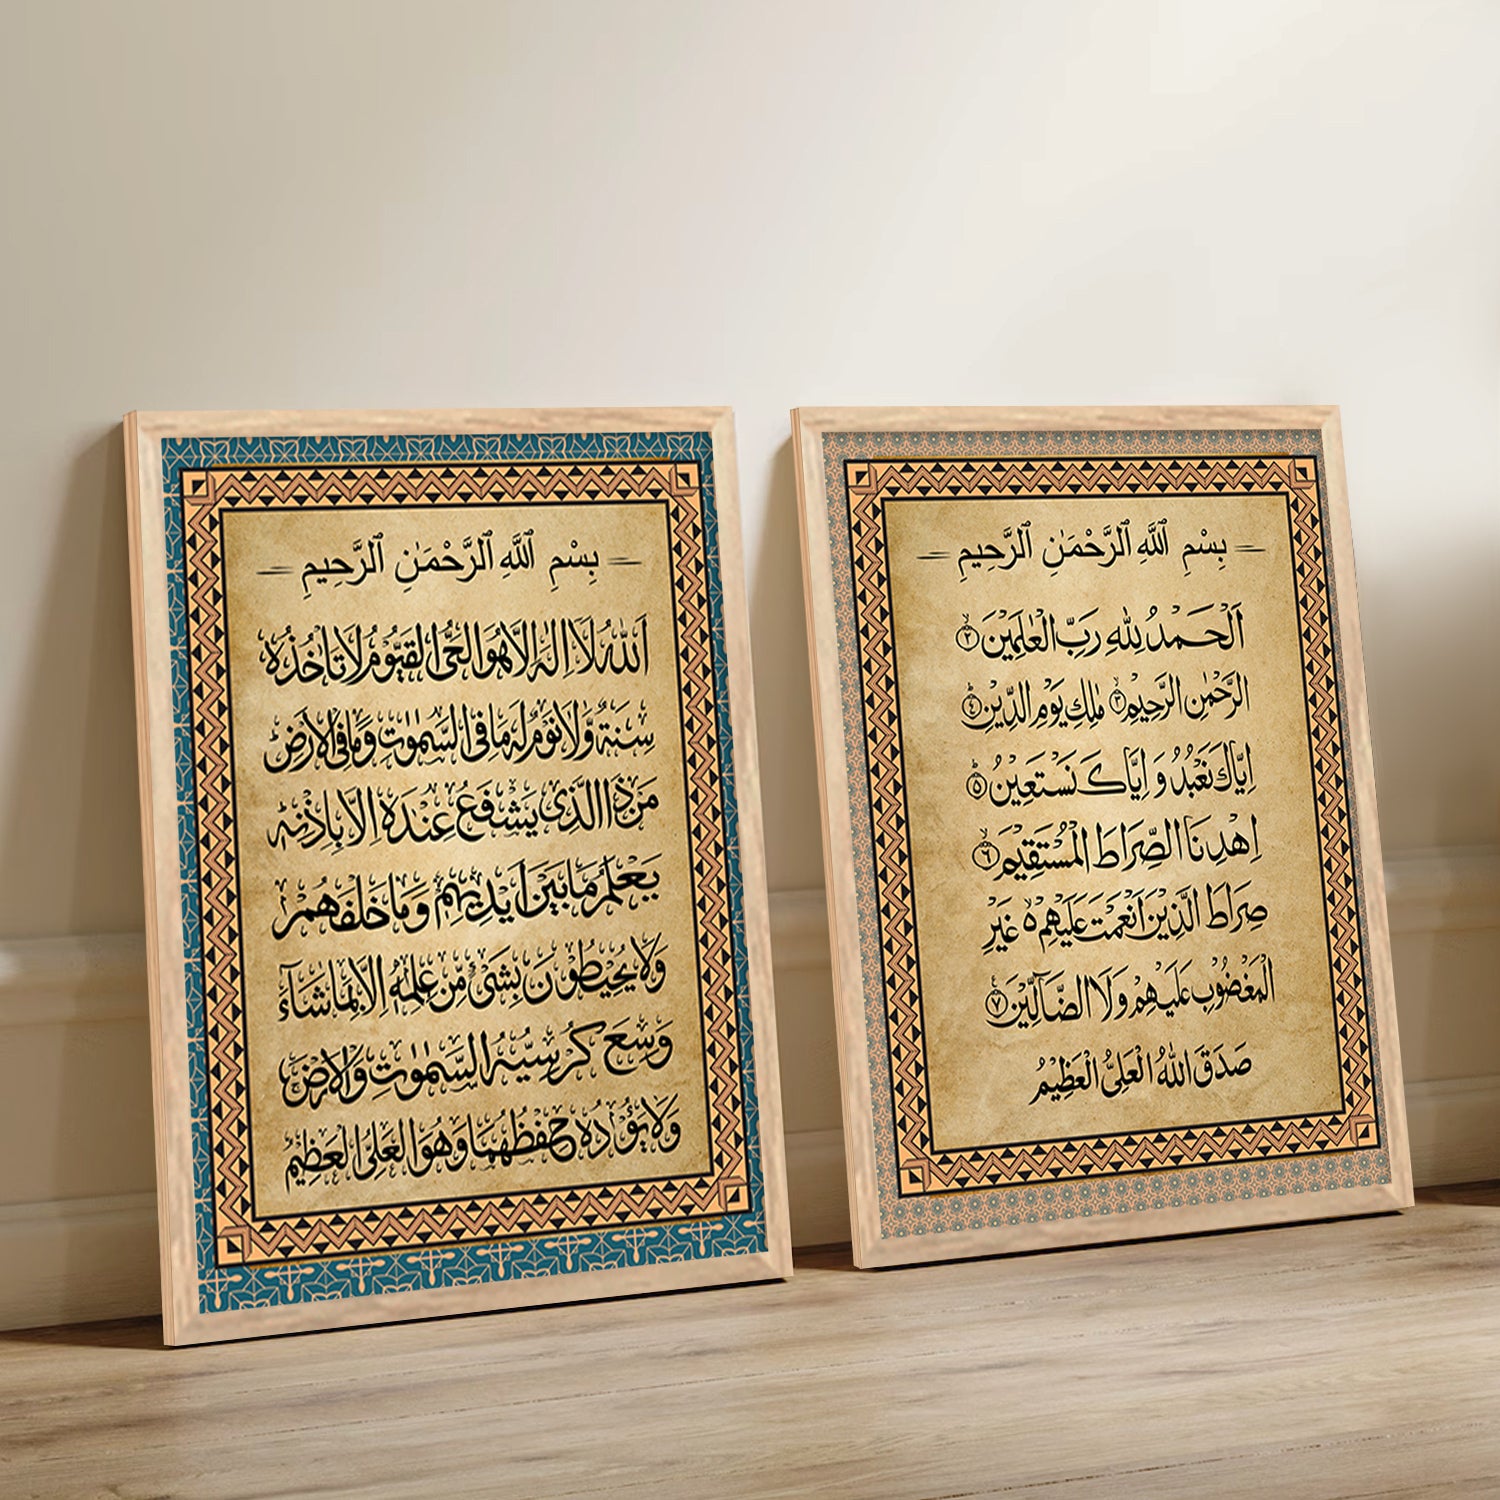 بِسْمِ اللَّهِ الرَّحْمَٰنِ الرَّحِيمِ
اَللّٰهُ لَا اِلٰهَ اِلَّا هُوَ الْحَيُّ الْقَيُّوْمُ لَا تَاْخُذُهٗ
سِنَةٌ وَّلَا نَوْمٌ لَهٗ مَا فِی السَّمٰوٰتِ وَمَا فِی الْاَرْضِ
مَنْ ذَا الَّذِیْ يَشْفَعُ عِنْدَهٗ اِلَّا بِاِذْنِهٖ ؕ
يَعْلَمُ مَا بَيْنَ اَيْدِيْهِمْ وَمَا خَلْفَهُمْ
وَلَا يُحِيْطُوْنَ بِشَیْءٍ مِّنْ عِلْمِهٖ اِلَّا بِمَا شَآءَ
وَسِعَ كُرْسِيُّهُ السَّمٰوٰتِ وَالْاَرْضَ
وَلَا يَـُٔوْدُهٗ حِفْظُهُمَا وَهُوَ الْعَلِیُّ الْعَظِيْمُ
بِسْمِ اللَّهِ الرَّحْمَٰنِ الرَّحِيمِ
اَلْحَمْدُ لِلّٰهِ رَبِّ الْعٰلَمِيْنَ ۲
الرَّحْمٰنِ الرَّحِيْمِ ۳ مٰلِكِ يَوْمِ الدِّيْنِ ٤
اِيَّاكَ نَعْبُدُ وَ اِيَّاكَ نَسْتَعِيْنُ ۵
اِهْدِنَا الصِّرَاطَ الْمُسْتَقِيْمَ ٦
صِرَاطَ الَّذِيْنَ اَنْعَمْتَ عَلَيْهِمْ ۵ غَيْرِ
الْمَغْضُوْبِ عَلَيْهِمْ وَلَا الضَّآلِّيْنَ ۷
صَدَقَ اللهُ الْعَلِیُّ الْعَظِيْمُ